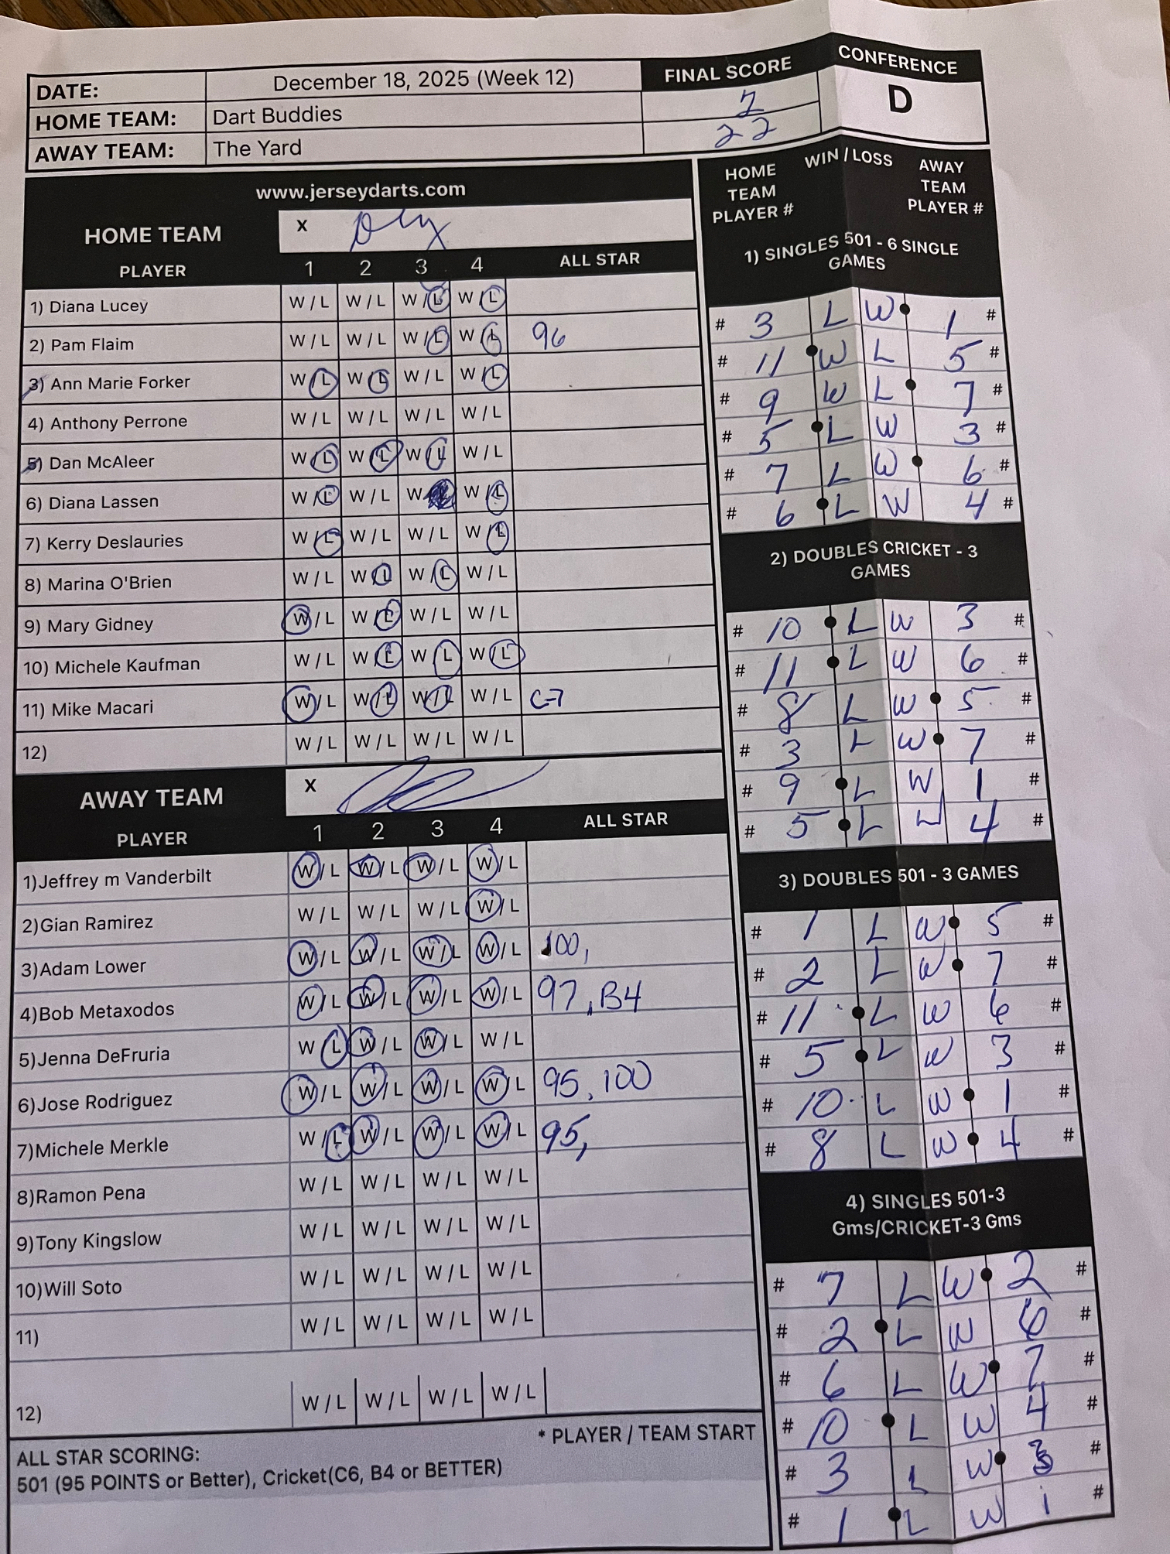 DATE: December 18, 2025 (Week 12) FINAL SCORE CONFERENCE
HOME TEAM: Dart Buddies 2 D
AWAY TEAM: The Yard 22
www.jerseydarts.com
HOME TEAM X
PLAYER 1 2 3 4 ALL STAR
1) Diana Lucey W/L W/L W/L W L
2) Pam Flaim W/L W/L W/L W L 96
3) Ann Marie Forker W L W L W/L W L
4) Anthony Perrone W/L W/L W/L W/L
5) Dan McAleer W L W L W L W/L
6) Diana Lassen W L W/L W W L
7) Kerry Deslauries W L W/L W/L W L
8) Marina O'Brien W/L W L W L W/L
9) Mary Gidney W/L W L W/L W/L
10) Michele Kaufman W/L W L W L W L
11) Mike Macari W/L W L W L W/L C-7
12) W/L W/L W/L W/L
AWAY TEAM X
PLAYER 1 2 3 4 ALL STAR
1)Jeffrey m Vanderbilt W/L W/L W/L W/L
2)Gian Ramirez W/L W/L W/L W/L
3)Adam Lower W/L W/L W/L W/L 100,
4)Bob Metaxodos W/L W/L W/L W/L 97, B4
5)Jenna DeFruria W L W/L W/L W/L
6)Jose Rodriguez W/L W/L W/L W/L 95, 100
7)Michele Merkle W/L W/L W/L W/L 95,
8)Ramon Pena W/L W/L W/L W/L
9)Tony Kingslow W/L W/L W/L W/L
10)Will Soto W/L W/L W/L W/L
11) W/L W/L W/L W/L
12) W/L W/L W/L W/L
* PLAYER / TEAM START
ALL STAR SCORING:
501 (95 POINTS or Better), Cricket(C6, B4 or BETTER)
HOME TEAM PLAYER # WIN / LOSS AWAY TEAM PLAYER #
1) SINGLES 501 - 6 SINGLE
GAMES
# 3 L W 1 #
# 11 W L 5 #
# 9 W L 7 #
# 5 L W 3 #
# 7 L W 6 #
# 6 L W 4 #
2) DOUBLES CRICKET - 3
GAMES
# 10 L W 3 #
# 11 L W 6 #
# 8 L W 5 #
# 3 L W 7 #
# 9 L W 1 #
# 5 L W 4 #
3) DOUBLES 501 - 3 GAMES
# 1 L W 5 #
# 2 L W 7 #
# 11 L W 6 #
# 5 L W 3 #
# 10 L W 1 #
# 8 L W 4 #
4) SINGLES 501-3
Gms/CRICKET-3 Gms
# 7 L W 2 #
# 2 L W 6 #
# 6 L W 7 #
# 10 L W 4 #
# 3 L W 3 #
# 1 L W 1 #